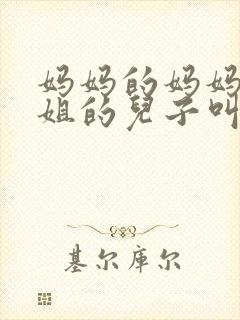 妈妈的妈妈
姐的兒子叫
基尔库尔